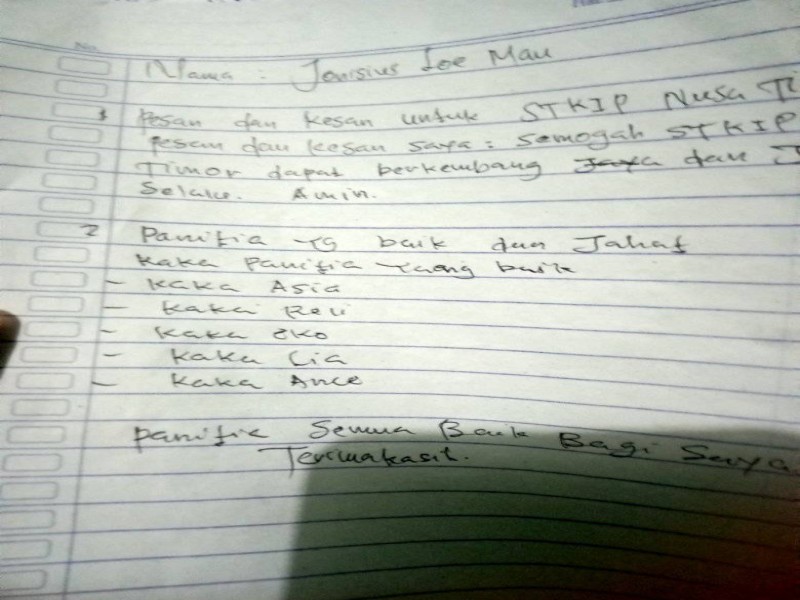 Nama : Jonisius Loe Mau
1 Pesan dan Kesan untuk STKIP Nusa Ti
Pesan dan kesan saya : semogah STKIP
Timor dapat berkembang Jaya dan J
Selalu. Amin.
2 Panitia Yg baik dan Jahat
Kaka Panitia Yaang baik
- Kaka Asia
- Kaka Reli
- Kaka Eko
- Kaka Cia
- Kaka Ance
Panitia Semua Baik Bagi Saya
Terimakasit.